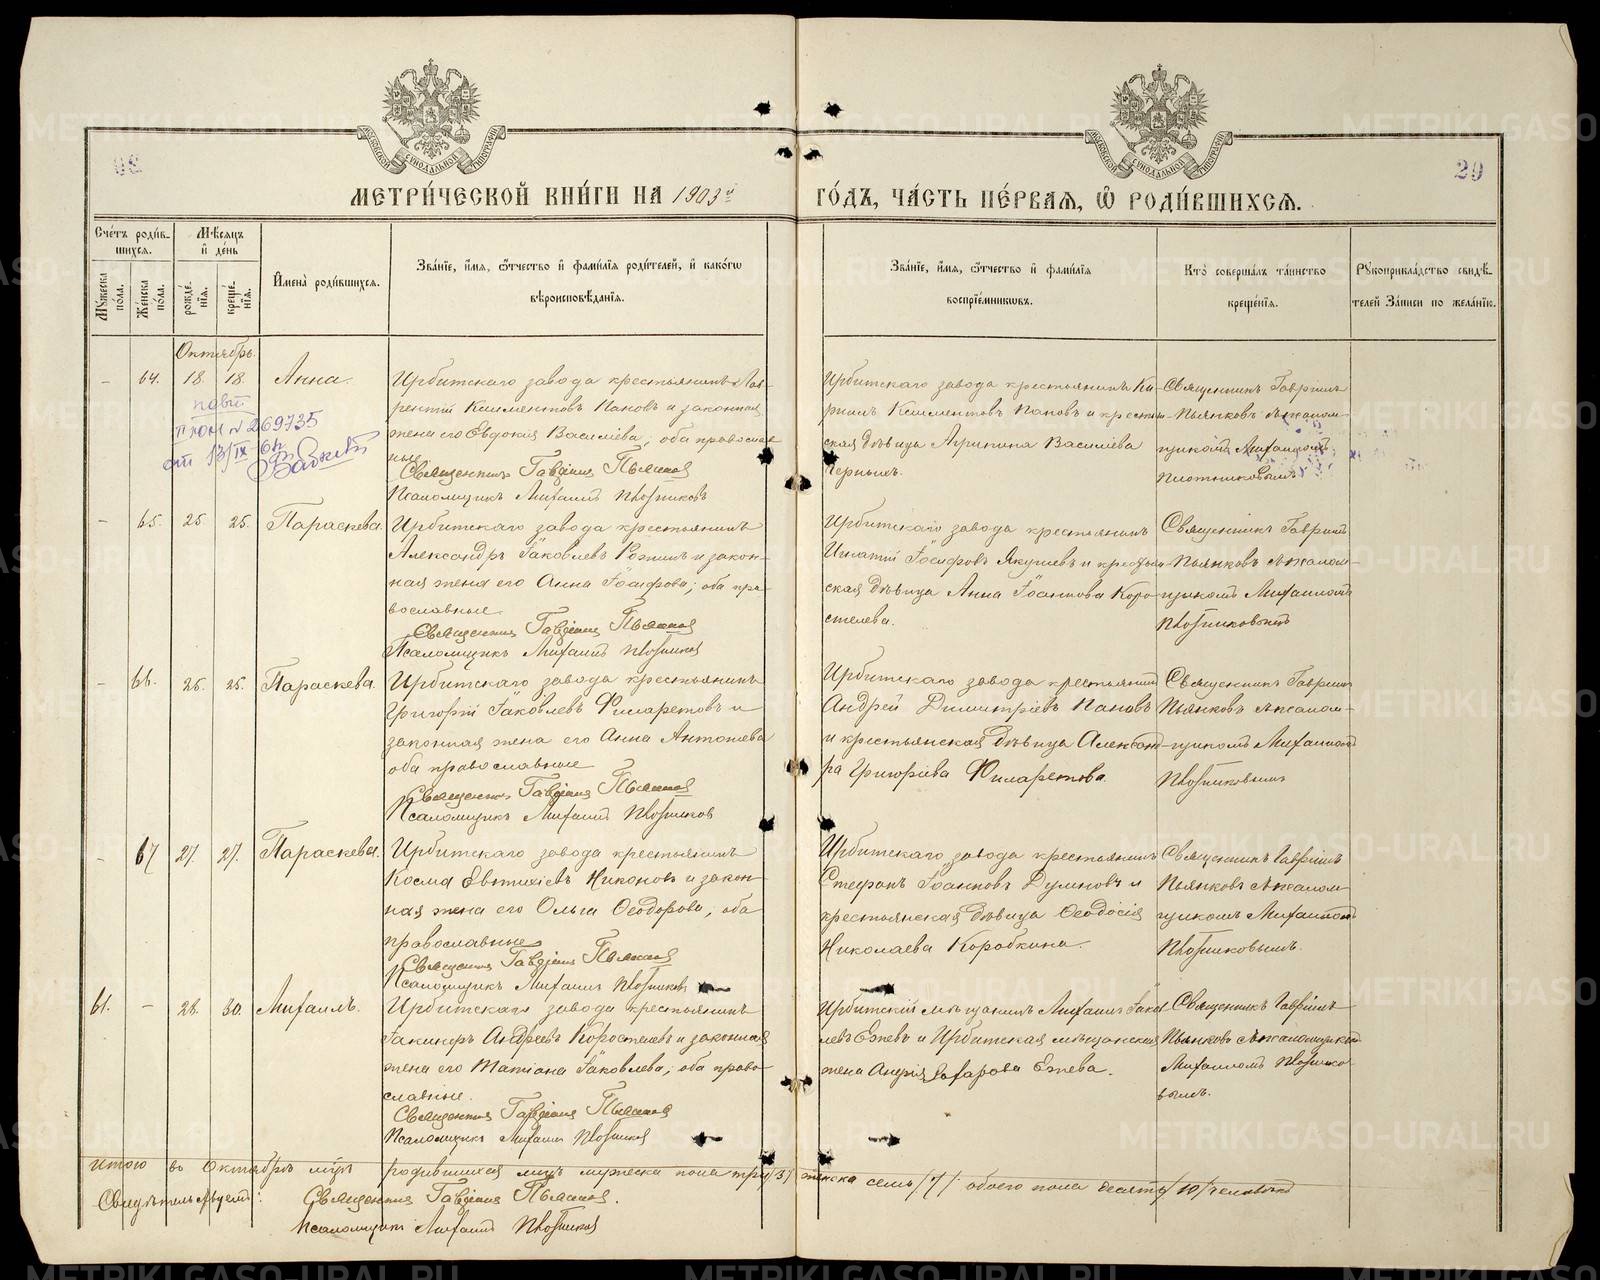 МОСКОВСКОЙ СѴНОДАЛЬНОЙ ТИПОГРАФІИ
МОСКОВСКОЙ СѴНОДАЛЬНОЙ ТИПОГРАФІИ
29
МЕТРИ́ЧЕСКОЙ КНИ́ГИ НА 1903й ГО́ДЪ, ЧА́СТЬ ПЕ́РВАЯ, Ѡ҆ РОДИ́ВШИХСЯ.
Сче́тъ роди́в-
шихся.
Мꙋ́жеска по́ла.
Же́нска по́ла.
Мѣ́сяцъ и҆ де́нь
рожде́нїѧ.
креще́нїѧ.
И҆мена̀ роди́вшихсѧ.
Зва́нїе, и҆́мѧ, ѻ҆́тчество и҆ фами́лїѧ роди́телей, и҆ како́гѡ
вѣроисповѣ́данїѧ.
Зва́нїе, и҆́мѧ, ѻ҆́тчество и҆ фами́лїѧ
воспрїе́мниковъ.
Кто̀ соверша́лъ та́инство
креще́нїѧ.
Рꙋкоприкла́дство свидѣ́-
телей за́писи по жела́нїю.
Октябрь.
- 64. 18. 18. Анна.
Ирбитскаго завода крестьянинъ Лав-
рентій Климентовъ Пановъ и законная
жена его Евдокия Василіева, оба православ-
ные
Священникъ Гавріилъ Пьянковъ
Псаломщикъ Михаилъ Плотниковъ
Ирбитскаго завода крестьянинъ Ки-
риллъ Климентовъ Пановъ и крестьян-
ская дѣвица Агрипина Василіева
Черныхъ.
Священникъ Гавріилъ
Пьянковъ съ псалом-
щикомъ Михаиломъ
Плотниковымъ
№ 269735
от 13/IX 6
- 65. 25. 25. Параскева.
Ирбитскаго завода крестьянинъ
Александръ Іаковлевъ Рожинъ и закон-
ная жена его Анна Іосифова; оба пра-
вославные
Священникъ Гавріилъ Пьянковъ
Псаломщикъ Михаилъ Плотниковъ
Ирбитскаго завода крестьянинъ
Игнатій Іосифовъ Якушевъ и крестьян-
ская дѣвица Анна Іоаннова Коро-
стелева.
Священникъ Гавріилъ
Пьянковъ съ псалом-
щикомъ Михаиломъ
Плотниковымъ
- 66. 25. 25. Параскева.
Ирбитскаго завода крестьянинъ
Григорій Іаковлевъ Филаретовъ и
законная жена его Анна Антониева
оба православные
Священникъ Гавріилъ Пьянковъ
Псаломщикъ Михаилъ Плотниковъ
Ирбитскаго завода крестьянинъ
Андрей Димитріевъ Пановъ
и крестьянская дѣвица Александ-
ра Григоріева Филаретова
Священникъ Гавріилъ
Пьянковъ съ псалом-
щикомъ Михаиломъ
Плотниковымъ
- 67 27. 27. Параскева.
Ирбитскаго завода крестьянинъ
Косма Евтихіевъ Никоновъ и закон-
ная жена его Ольга Ѳеодорова, оба
православные
Священникъ Гавріилъ Пьянковъ
Псаломщикъ Михаилъ Плотниковъ
Ирбитскаго завода крестьянинъ
Стефанъ Іоанновъ Думновъ и
крестьянская дѣвица Ѳеодосія
Николаева Коробкина.
Священникъ Гавріилъ
Пьянковъ съ псалом-
щикомъ Михаиломъ
Плотниковымъ.
61. - 28. 30. Михаилъ.
Ирбитскаго завода крестьянинъ
Андреевъ Коростелевъ и законная
жена его Татіана Іаковлева; оба право-
славные.
Священникъ Гавріилъ Пьянковъ
Псаломщикъ Михаилъ Плотниковъ
Ирбитскій мѣщанинъ Михаилъ Іаков-
левъ Ежевъ и Ирбитская мѣщанская
жена Захарова Ежева.
Священникъ Гавріилъ
Пьянковъ съ псаломщикомъ
Михаиломъ Плотнико-
вымъ.
Итого въ Октябрѣ мцѣ родившихся муж. мужеска пола три /3/ женска семь /7/ обоего пола десять /10/ человѣкъ
Свидѣтельствуемъ: Священникъ Гавріилъ Пьянковъ.
Псаломщикъ Михаилъ Плотниковъ
METRIKI.GASO-URAL.RU